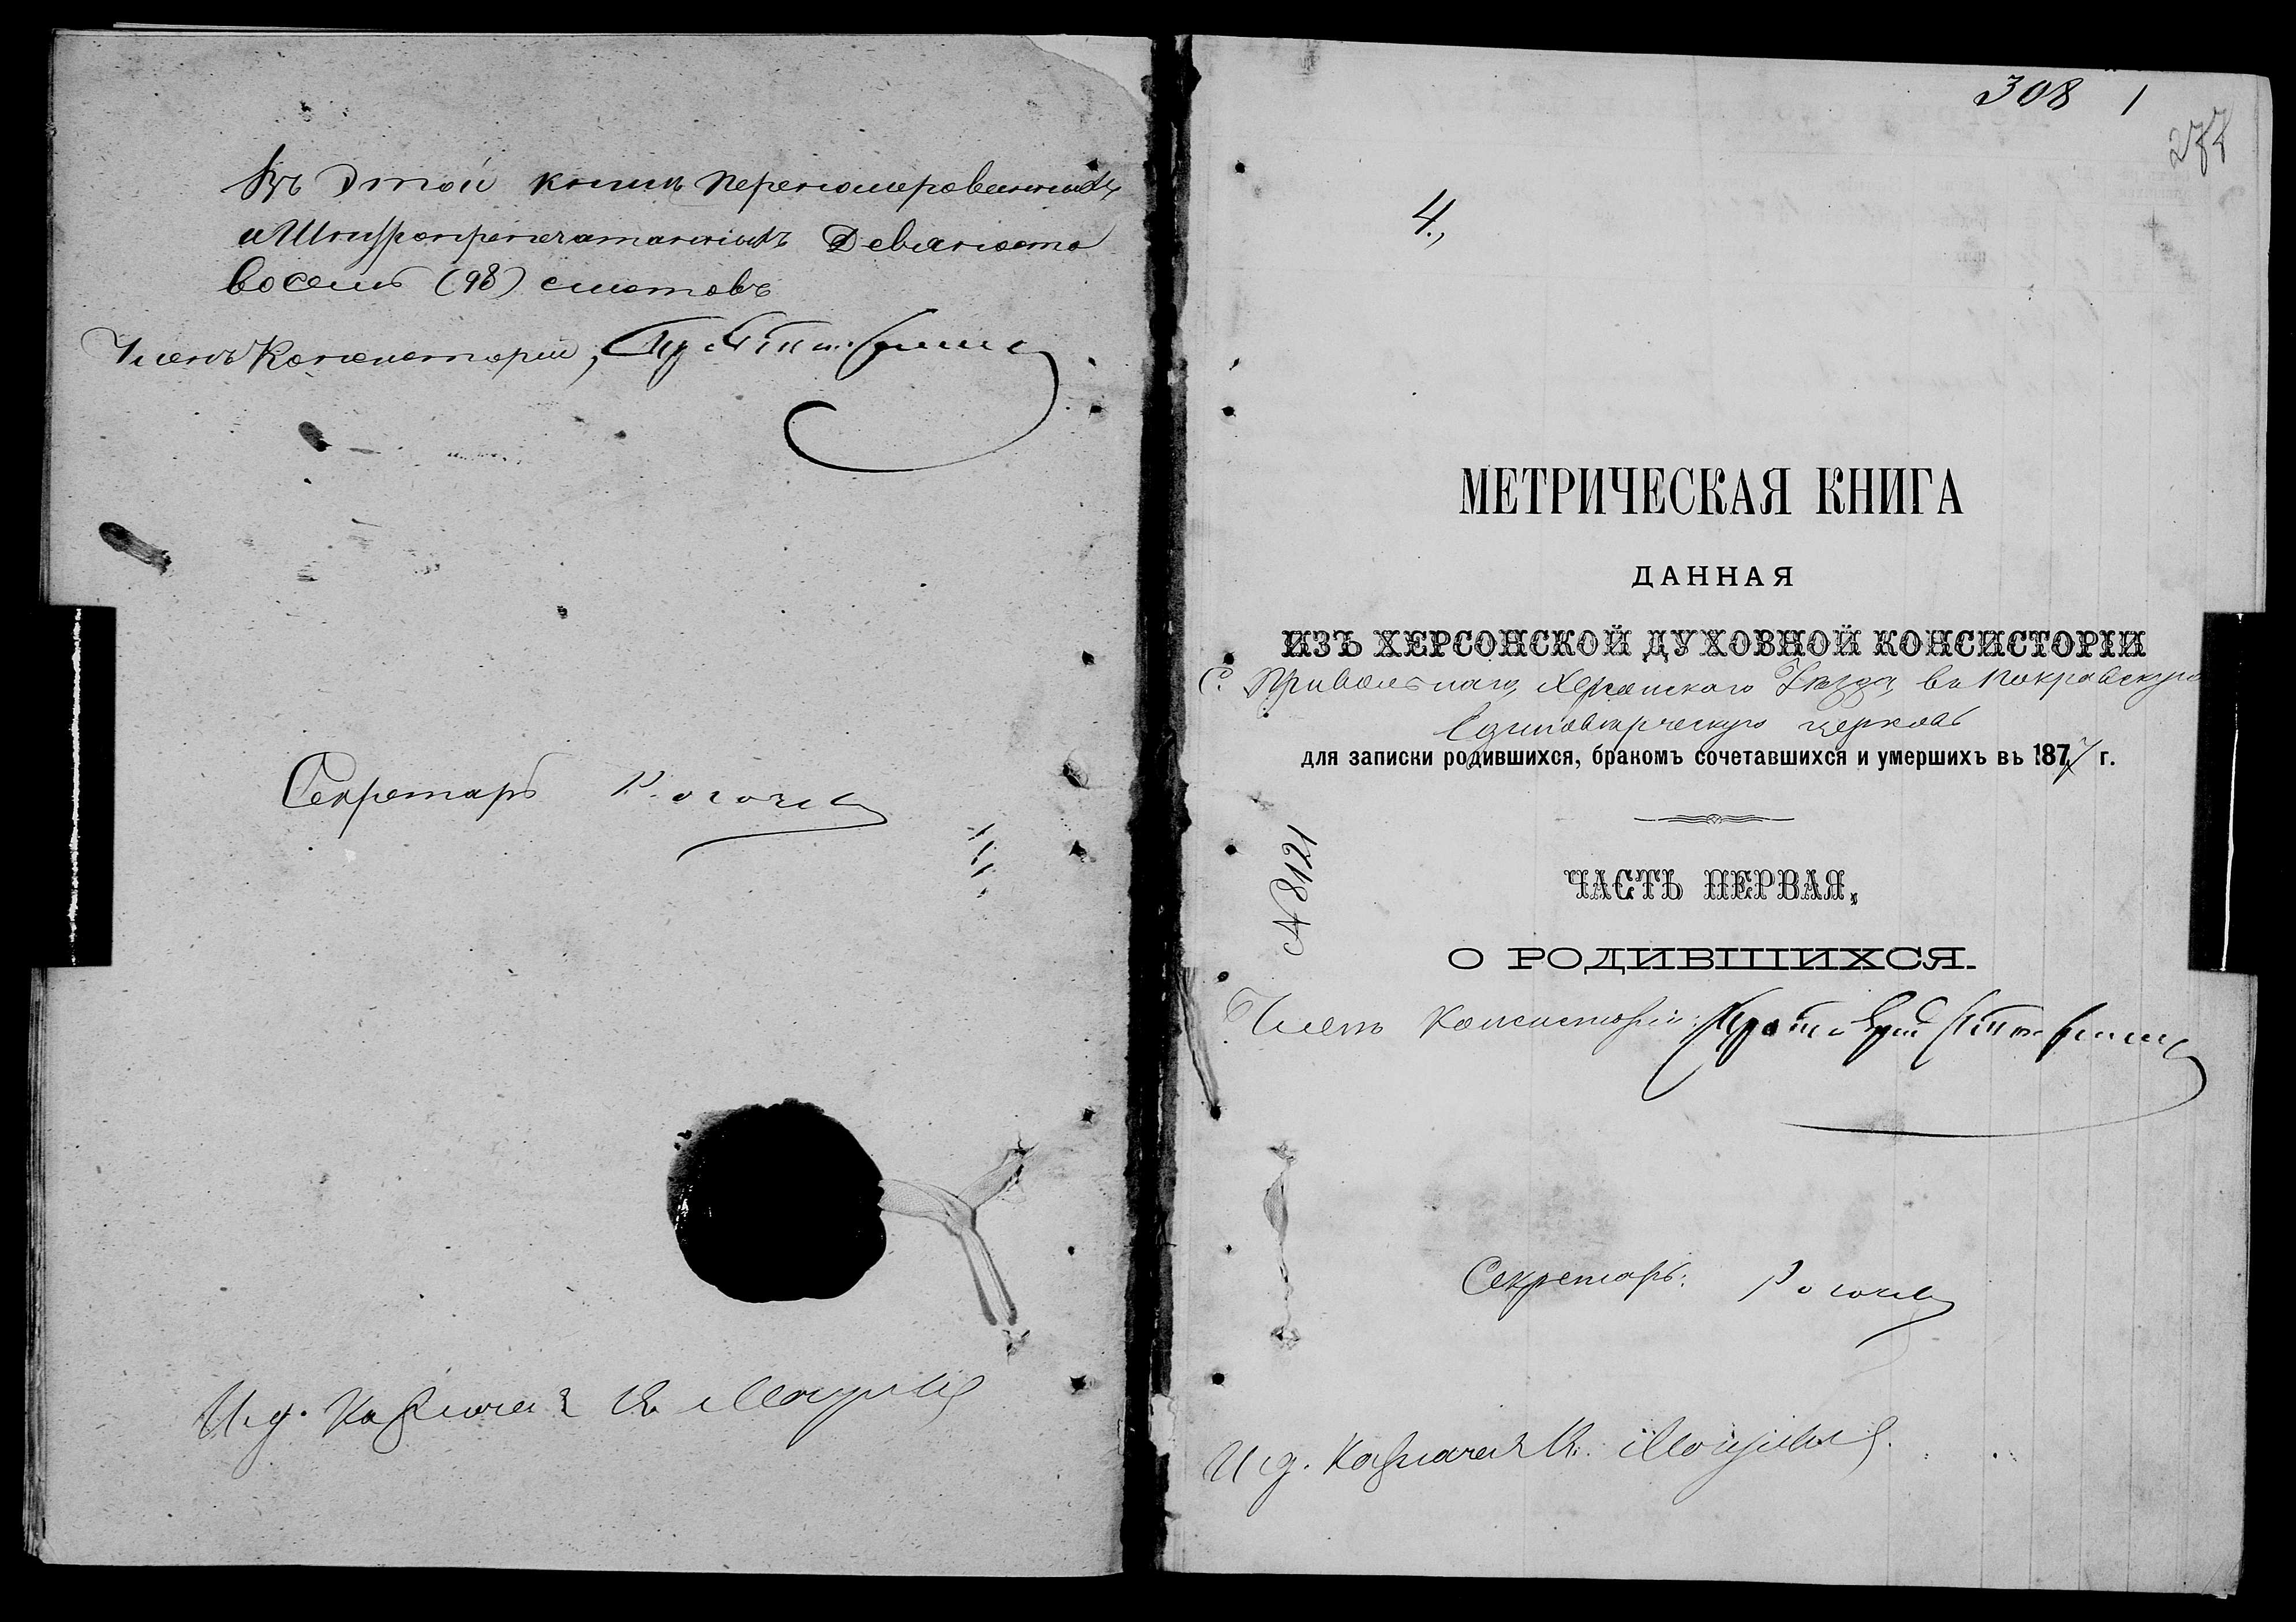 Въ этой книгѣ перенумерованныхъ
и Шнуропрепечатанныхъ Девяносто
восемь (98) листовъ
Членъ Консисторіи,
Секретарь Рогачев
И. д. Казначея К.
308 1
277
4.,
МЕТРИЧЕСКАЯ КНИГА
ДАННАЯ
ИЗЪ ХЕРСОНСКОЙ ДУХОВНОЙ КОНСИСТОРІИ
С. Привольнаго, Херсонскаго Уѣзда, въ Покровскую
Единовѣрческую церковь
для записки родившихся, бракомъ сочетавшихся и умершихъ въ 1877 г.
№ 8121
ЧАСТЬ ПЕРВАЯ,
О РОДИВШИХСЯ.
Членъ Консисторіи: Протоіерей
Секретарь: Рогачев
И. д. Казначея К.